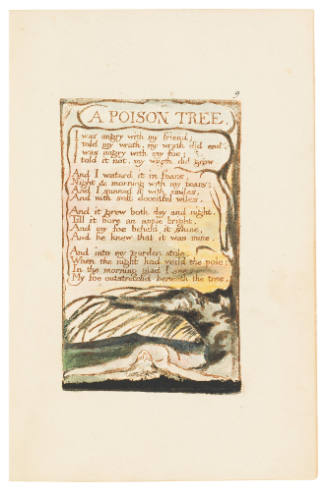 9
A POISON TREE.
I was angry with my friend;
I told my wrath, my wrath did end.
I was angry with my foe:
I told it not, my wrath did grow
And I waterd it in fears,
Night & morning with my tears:
And I sunned it with smiles,
And with soft deceitful wiles.
And it grew both day and night.
Till it bore an apple bright.
And my foe beheld it shine,
And he knew that it was mine.
And into my garden stole,
When the night had veild the pole;
In the morning glad I see;
My foe outstretchd beneath the tree.